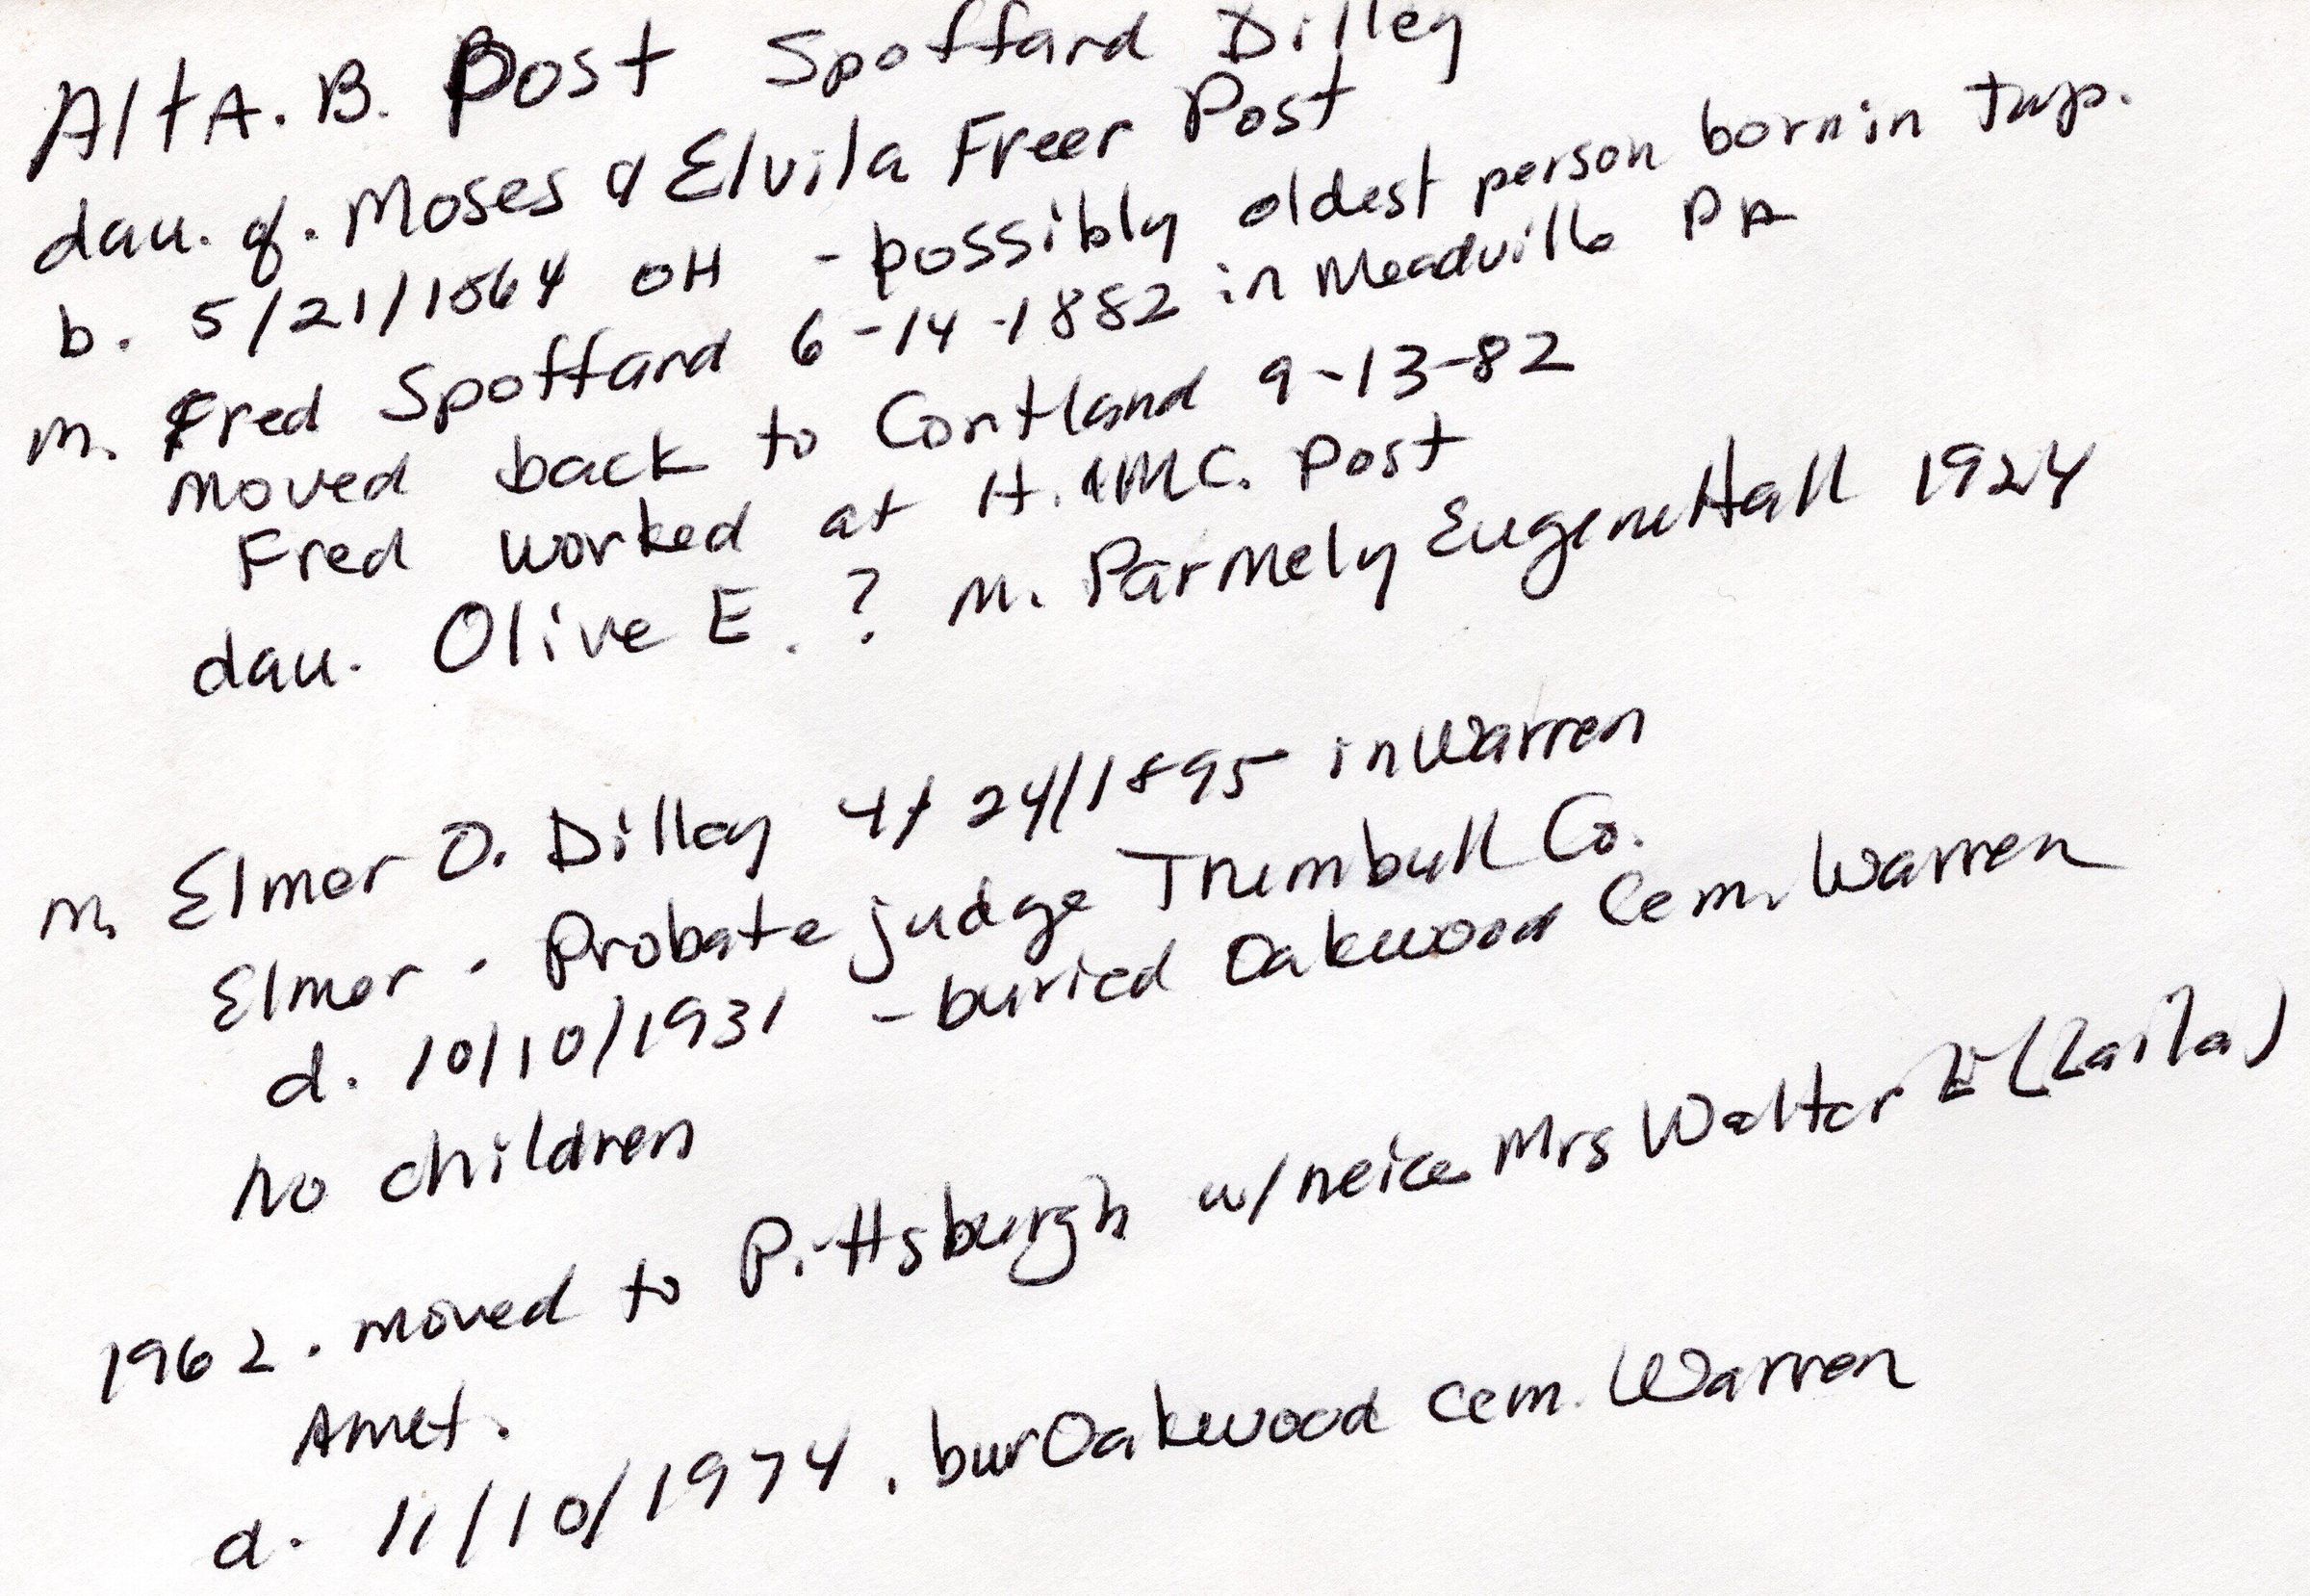 AltA. B. Post Spoffard Dilley
dau. of. Moses & Elvila Freer Post
b. 5/21/1864 OH - possibly oldest person born in twp.
m. Fred Spoffard 6-14-1882 in Meadville PA
moved back to Cortland 9-13-82
Fred worked at H. & M.C. Post
dau. Olive E. ? m. Parmely Eugene Hall 1924
m. Elmer O. Dilley 4/24/1895 in Warren
Elmer - Probate judge Trumbull Co.
d. 10/10/1931 - buried Oakwood Cem. Warren
No children
1962. moved to Pittsburgh w/ neice Mrs Walter (Zaila)
d. 11/10/1974. bur Oakwood Cem. Warren